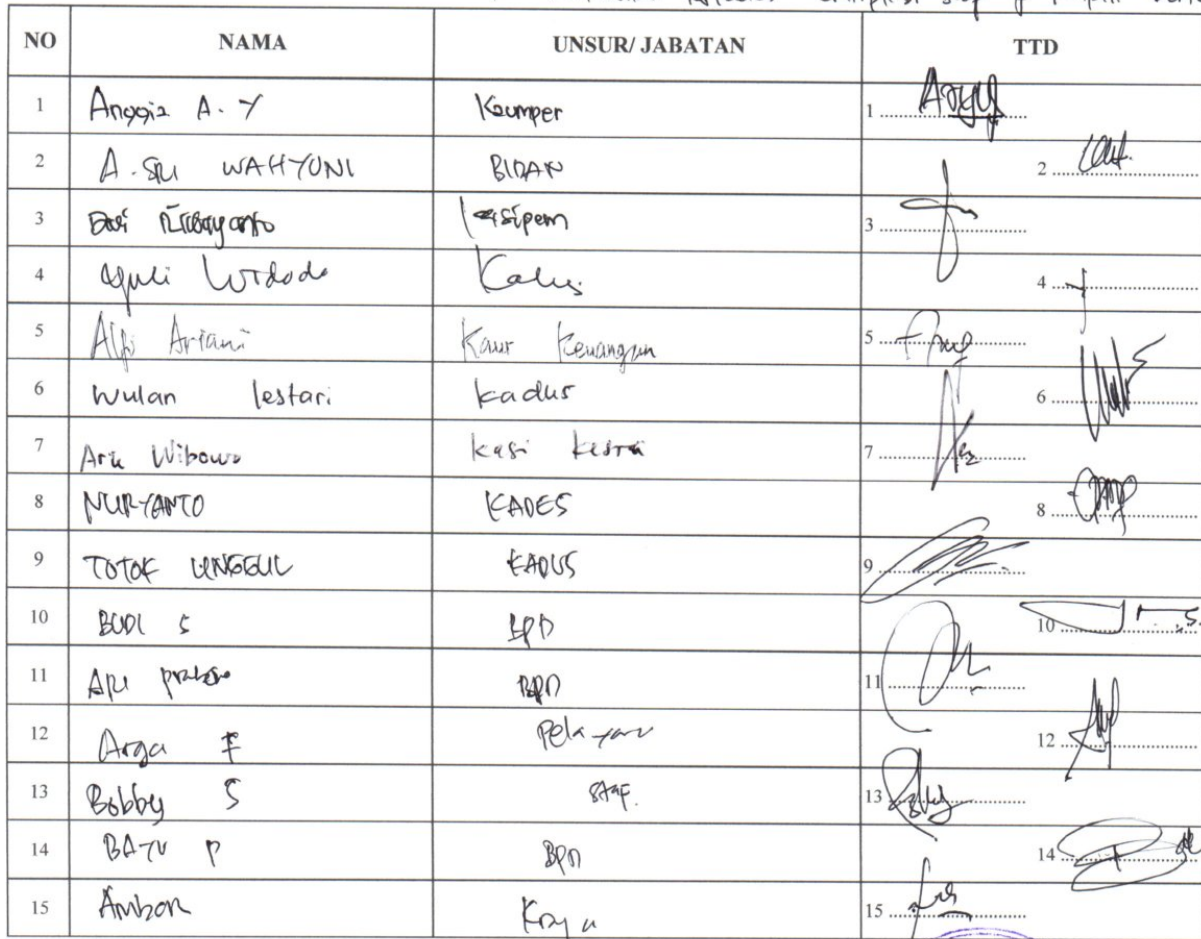 NO NAMA UNSUR/ JABATAN TTD
1 Anggia A. Y Kaumper 1
2 A. SRI WAHYUNI BIDAN 2
3 kasipem 3
4 Widodo Kadus 4
5 Alfi Ariani Kaur Keuangan 5
6 Wulan lestari kadus 6
7 Ari Wibowo kasi kesra 7
8 NURYANTO KADES 8
9 TOTOK UNGGUL KADUS 9
10 BUDI S BPD 10
11 ARI BPD 11
12 Arga F 12
13 Bobby S STAF. 13
14 BAYU P BPD 14
15 Ambon 15